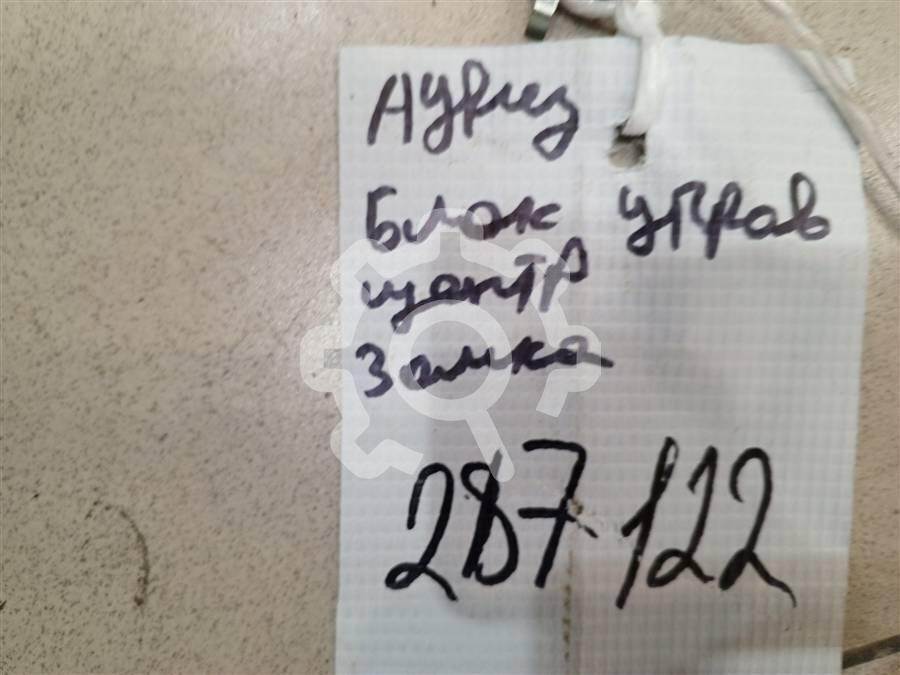 Аурис
Блок управ
центр
Замка
287-122